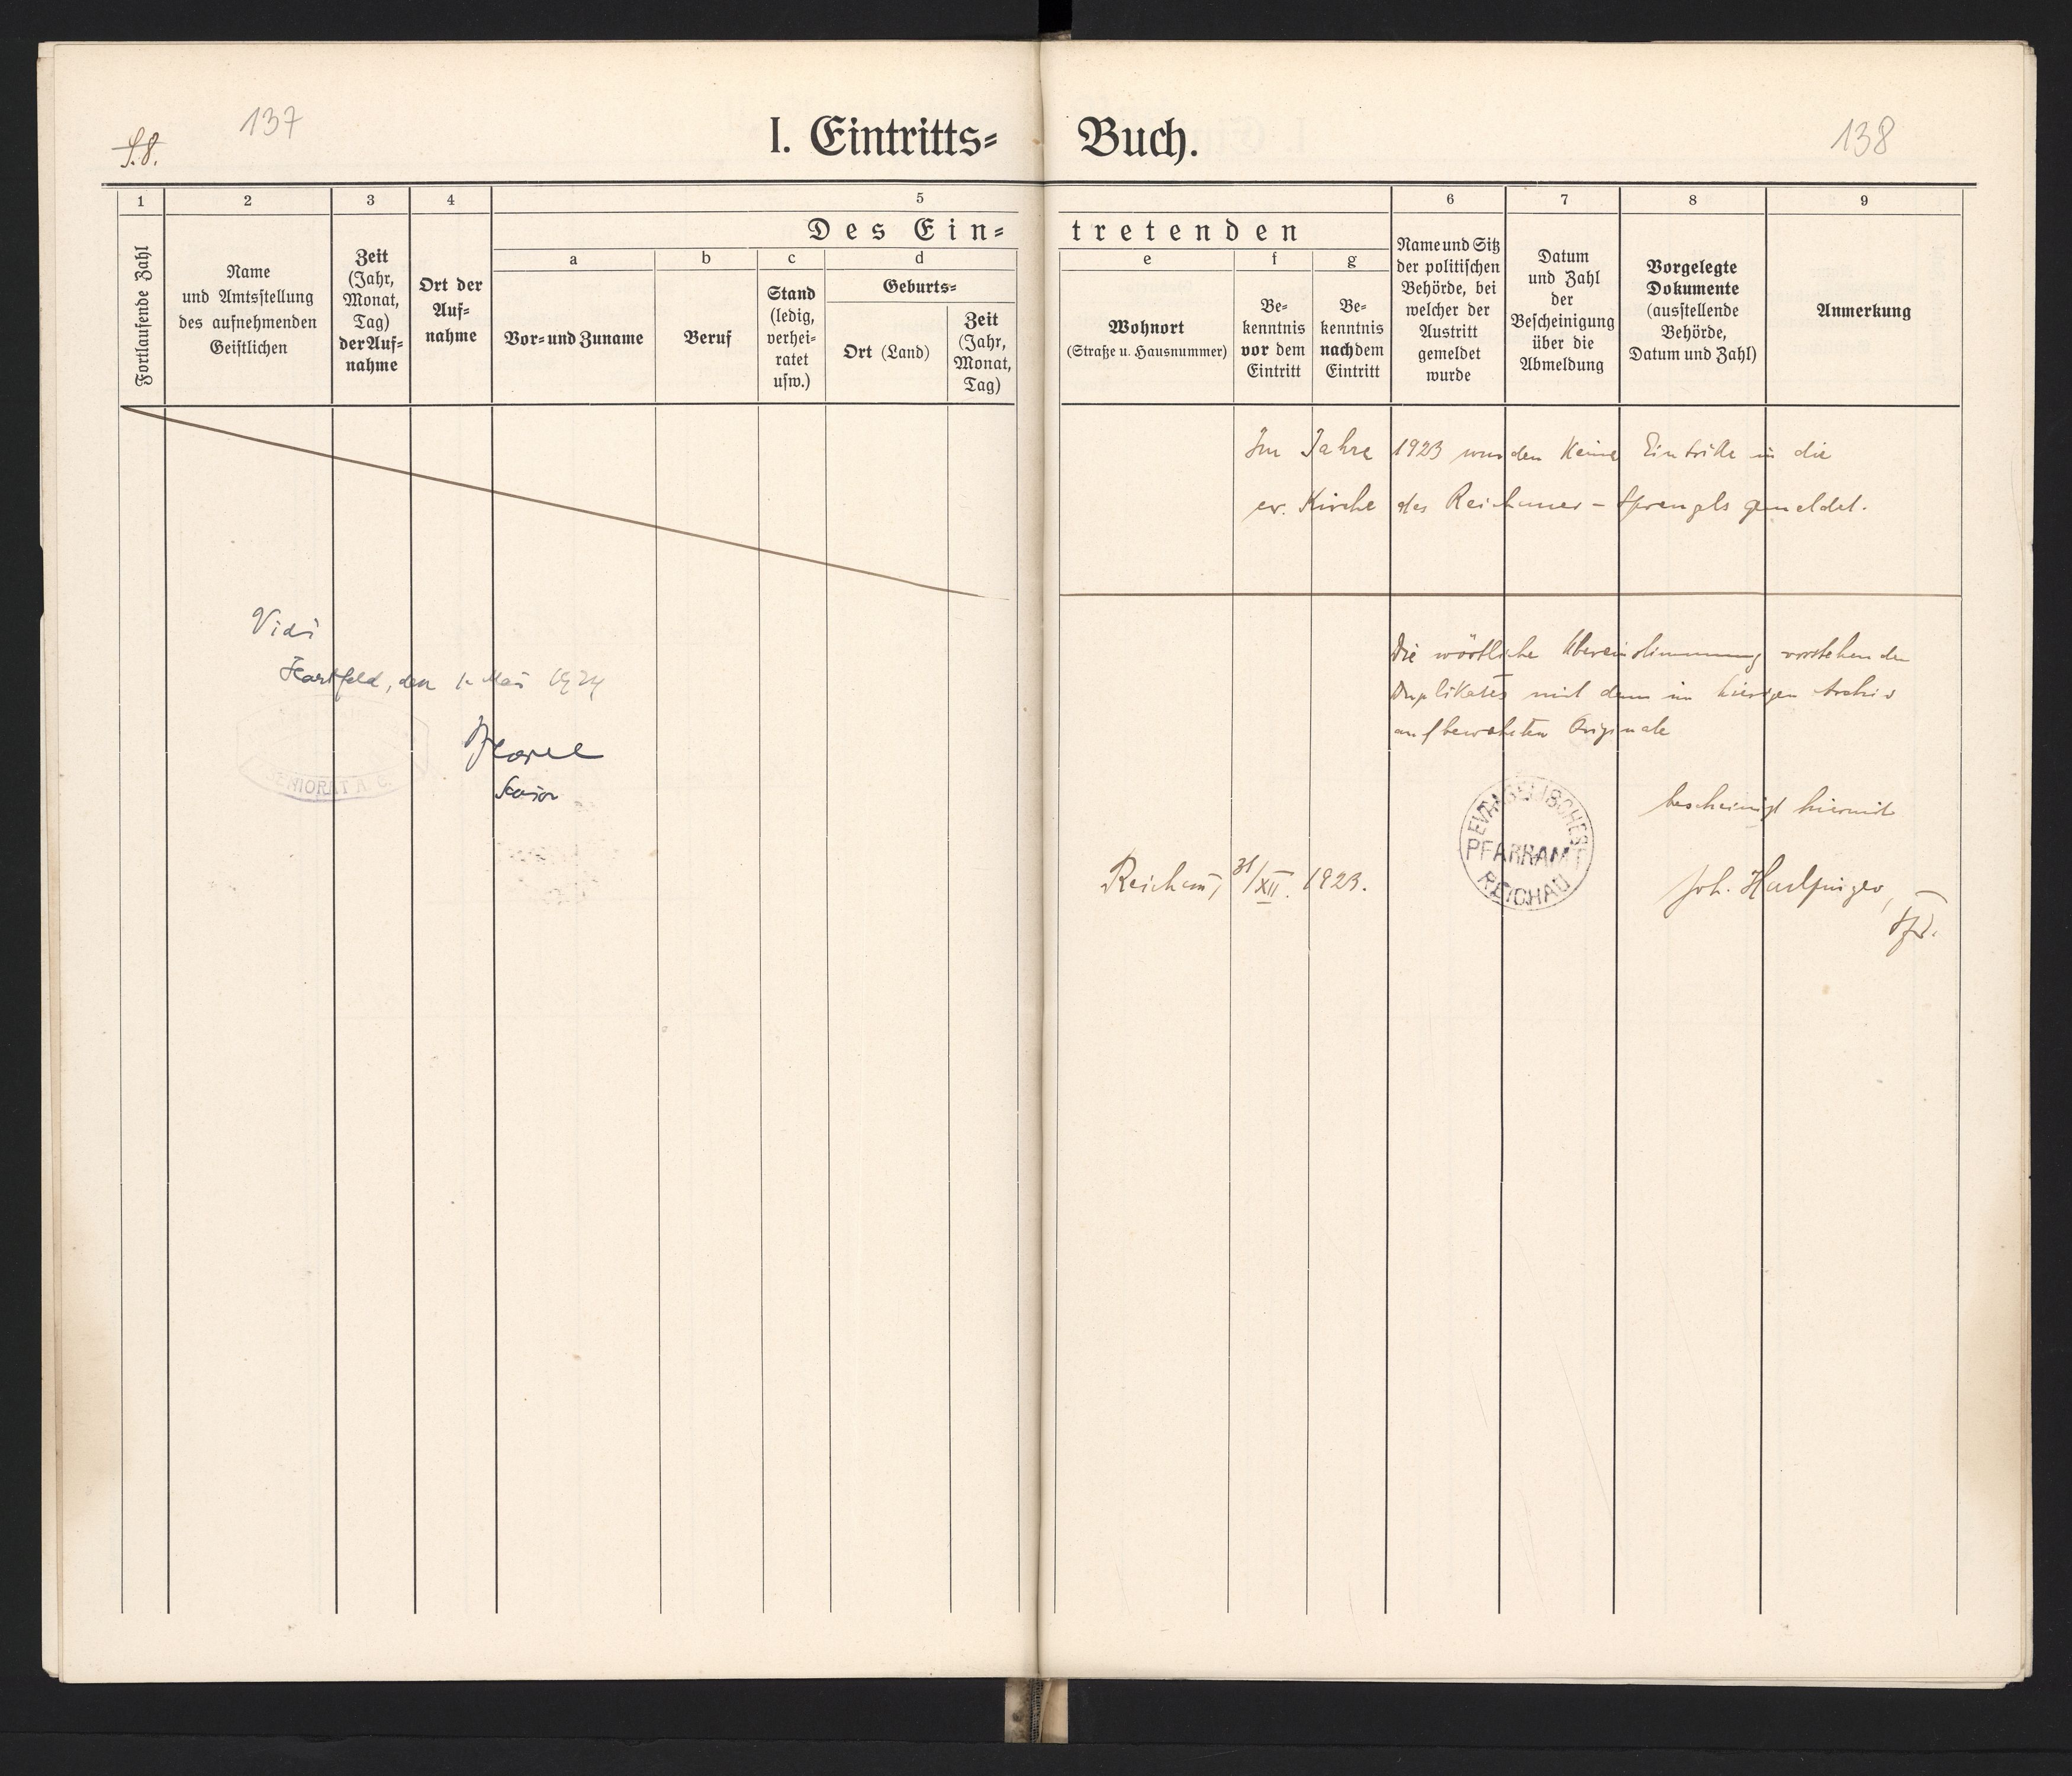 137
S. 8.
I. Eintritts-
1
2
3
4
5
Des Ein-
Fortlaufende Zahl
Name
und Amtsstellung
des aufnehmenden
Geistlichen
Zeit
(Jahr,
Monat,
Tag)
der Auf-
nahme
Ort der
Auf-
nahme
a
Vor- und Zuname
b
Beruf
c
Stand
(ledig,
verhei-
ratet
usw.)
d
Geburts-
Ort (Land)
Zeit
(Jahr,
Monat,
Tag)
Vidi
Hartfeld, den 1. Mai 1924
Senior
SENIORAT A. C.
Buch.
138
tretenden
6
7
8
9
e
Wohnort
(Straße u. Hausnummer)
f
Be-
kenntnis
vor dem
Eintritt
g
Be-
kenntnis
nach dem
Eintritt
Name und Sitz
der politischen
Behörde, bei
welcher der
Austritt
gemeldet
wurde
Datum
und Zahl
der
Bescheinigung
über die
Abmeldung
Vorgelegte
Dokumente
(ausstellende
Behörde,
Datum und Zahl)
Anmerkung
Im Jahre 1923 wurden keine Eintritte in die
ev. Kirche des Reichauer-Sprengls gemeldet.
Die wörtliche Übereinstimmung vorstehenden
Duplikates mit dem im hiesigen Archiv
aufbewahrten Originale
bescheinigt hiermit
EVANGELISCHES
PFARRAMT
REICHAU
Reichau, 31/XII. 1923.
Joh.